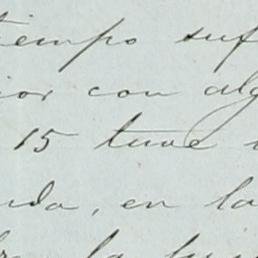 tiempo suf
ior con alg
15 tuve
nda, en la